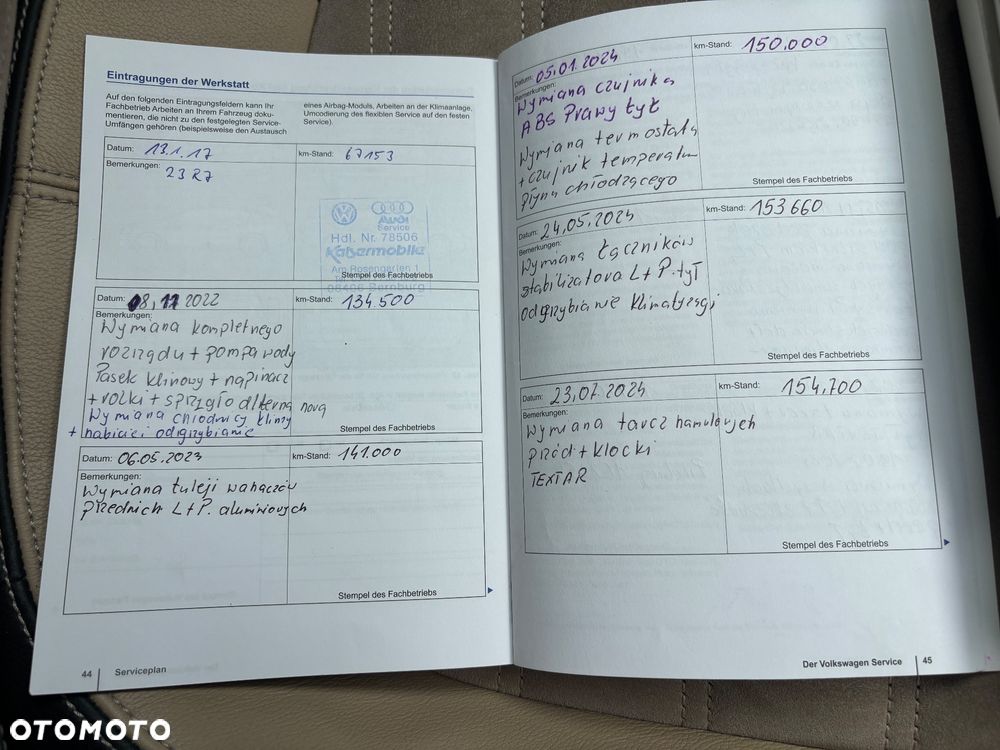 Eintragungen der Werkstatt
Auf den folgenden Eintragungsfeldern kann Ihr
Fachbetrieb Arbeiten an Ihrem Fahrzeug doku-
mentieren, die nicht zu den festgelegten Service-
Umfängen gehören (beispielsweise den Austausch
eines Airbag-Moduls, Arbeiten an der Klimaanlage,
Umcodierung des flexiblen Service auf den festen
Service).
Datum: 13.1.17
km-Stand: 67153
Bemerkungen:
23 R7
Audi
Service
Hdl. Nr. 78506
Kaisermobile
Am Rosengarten 1
06406 Bernburg
Stempel des Fachbetriebs
Datum: 08,11 2022
km-Stand: 134.500
Bemerkungen:
Wymiana kompletnego
rozrządu + pompa wody
Pasek klinowy + napinacz
+ rolki + sprzęgło alterna nova
Wymiana chłodnicy klimy
+ nabicie i odgrzybianie
Stempel des Fachbetriebs
Datum: 06.05.2023
km-Stand: 141.000
Bemerkungen:
Wymiana tuleji wahaczów
przednich L+P. aluminiowych
Stempel des Fachbetriebs
44 Serviceplan
Datum: 05.01.2024
km-Stand: 150.000
Bemerkungen:
Wymiana czujnika
ABS Prawy tył
Wymiana termostatu
+ czujnik temperatu
płynu chłodzącego
Stempel des Fachbetriebs
Datum: 24.05.2024
km-Stand: 153660
Bemerkungen:
Wymiana Łączników
stabilizatora L+P. tył
odgrzybianie klimatyzacji
Stempel des Fachbetriebs
Datum: 23.07.2024
km-Stand: 154.700
Bemerkungen:
Wymiana tarcz hamulcowych
przód + klocki
TEXTAR
Stempel des Fachbetriebs
Der Volkswagen Service 45
OTOMOTO